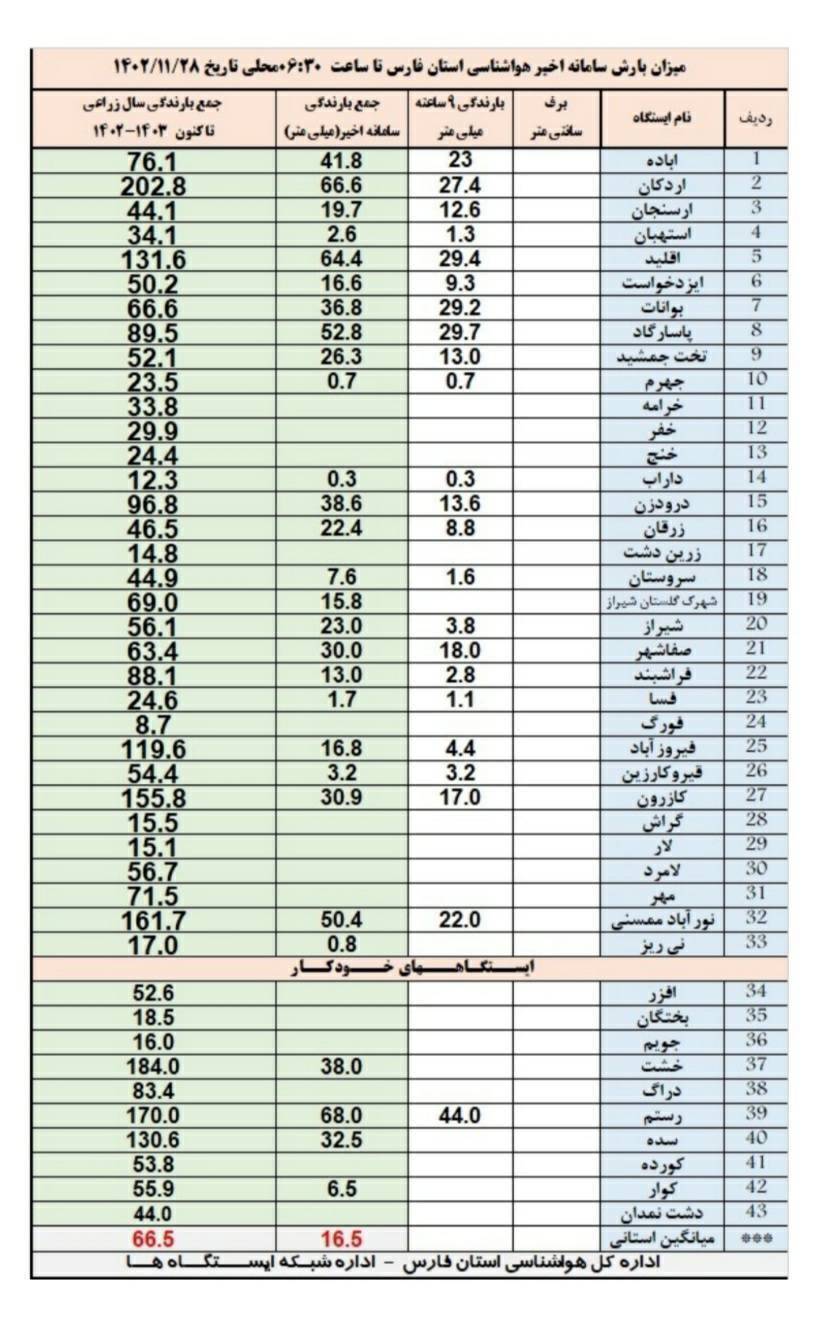 میزان بارش سامانه اخیر هواشناسی استان فارس تا ساعت ۰۶:۳۰محلی تاریخ ۱۴۰۲/۱۱/۲۸
ردیف نام ایستگاه برف سانتی متر بارندگی ۹ ساعته میلی متر جمع بارندگی سامانه اخیر(میلی متر) جمع بارندگی سال زراعی تاکنون ۱۴۰۳-۱۴۰۲
1 اباده 23 41.8 76.1
2 اردکان 27.4 66.6 202.8
3 ارسنجان 12.6 19.7 44.1
4 استهبان 1.3 2.6 34.1
5 اقلید 29.4 64.4 131.6
6 ایزدخواست 9.3 16.6 50.2
7 بوانات 29.2 36.8 66.6
8 پاسارگاد 29.7 52.8 89.5
9 تخت جمشید 13.0 26.3 52.1
10 جهرم 0.7 0.7 23.5
11 خرامه 33.8
12 خفر 29.9
13 خنج 24.4
14 داراب 0.3 0.3 12.3
15 درودزن 13.6 38.6 96.8
16 زرقان 8.8 22.4 46.5
17 زرین دشت 14.8
18 سروستان 1.6 7.6 44.9
19 شهرک گلستان شیراز 15.8 69.0
20 شیراز 3.8 23.0 56.1
21 صفاشهر 18.0 30.0 63.4
22 فراشبند 2.8 13.0 88.1
23 فسا 1.1 1.7 24.6
24 فورگ 8.7
25 فیروزآباد 4.4 16.8 119.6
26 قیروکارزین 3.2 3.2 54.4
27 کازرون 17.0 30.9 155.8
28 گراش 15.5
29 لار 15.1
30 لامرد 56.7
31 مهر 71.5
32 نورآباد ممسنی 22.0 50.4 161.7
33 نی ریز 0.8 17.0
ایستگاههای خودکار
34 افزر 52.6
35 بختگان 18.5
36 جویم 16.0
37 خشت 38.0 184.0
38 دراگ 83.4
39 رستم 44.0 68.0 170.0
40 سده 32.5 130.6
41 کورده 53.8
42 کوار 6.5 55.9
43 دشت نمدان 44.0
*** میانگین استانی 16.5 66.5
اداره کل هواشناسی استان فارس - اداره شبکه ایستگاه ها